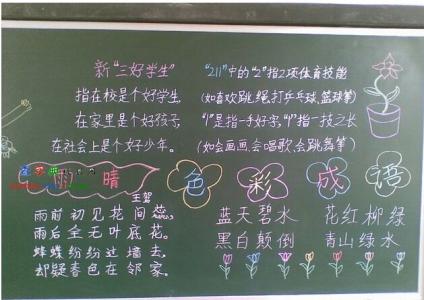 新“三好学生”
指在校是个好学生,
在家里是个好孩子,
在社会上是个好少年。
“211”中的“2”指2项体育技能
(如喜欢跳绳,打乒乓球,篮球等)
“1”是指一手好字,“1”指一技之长
(如会画画,会唱歌,会跳舞等)
雨晴
王驾
雨前初见花间蕊,
雨后全无叶底花。
蜂蝶纷纷过墙去,
却疑春色在邻家。
色彩成语
蓝天碧水 花红柳绿
黑白颠倒 青山绿水